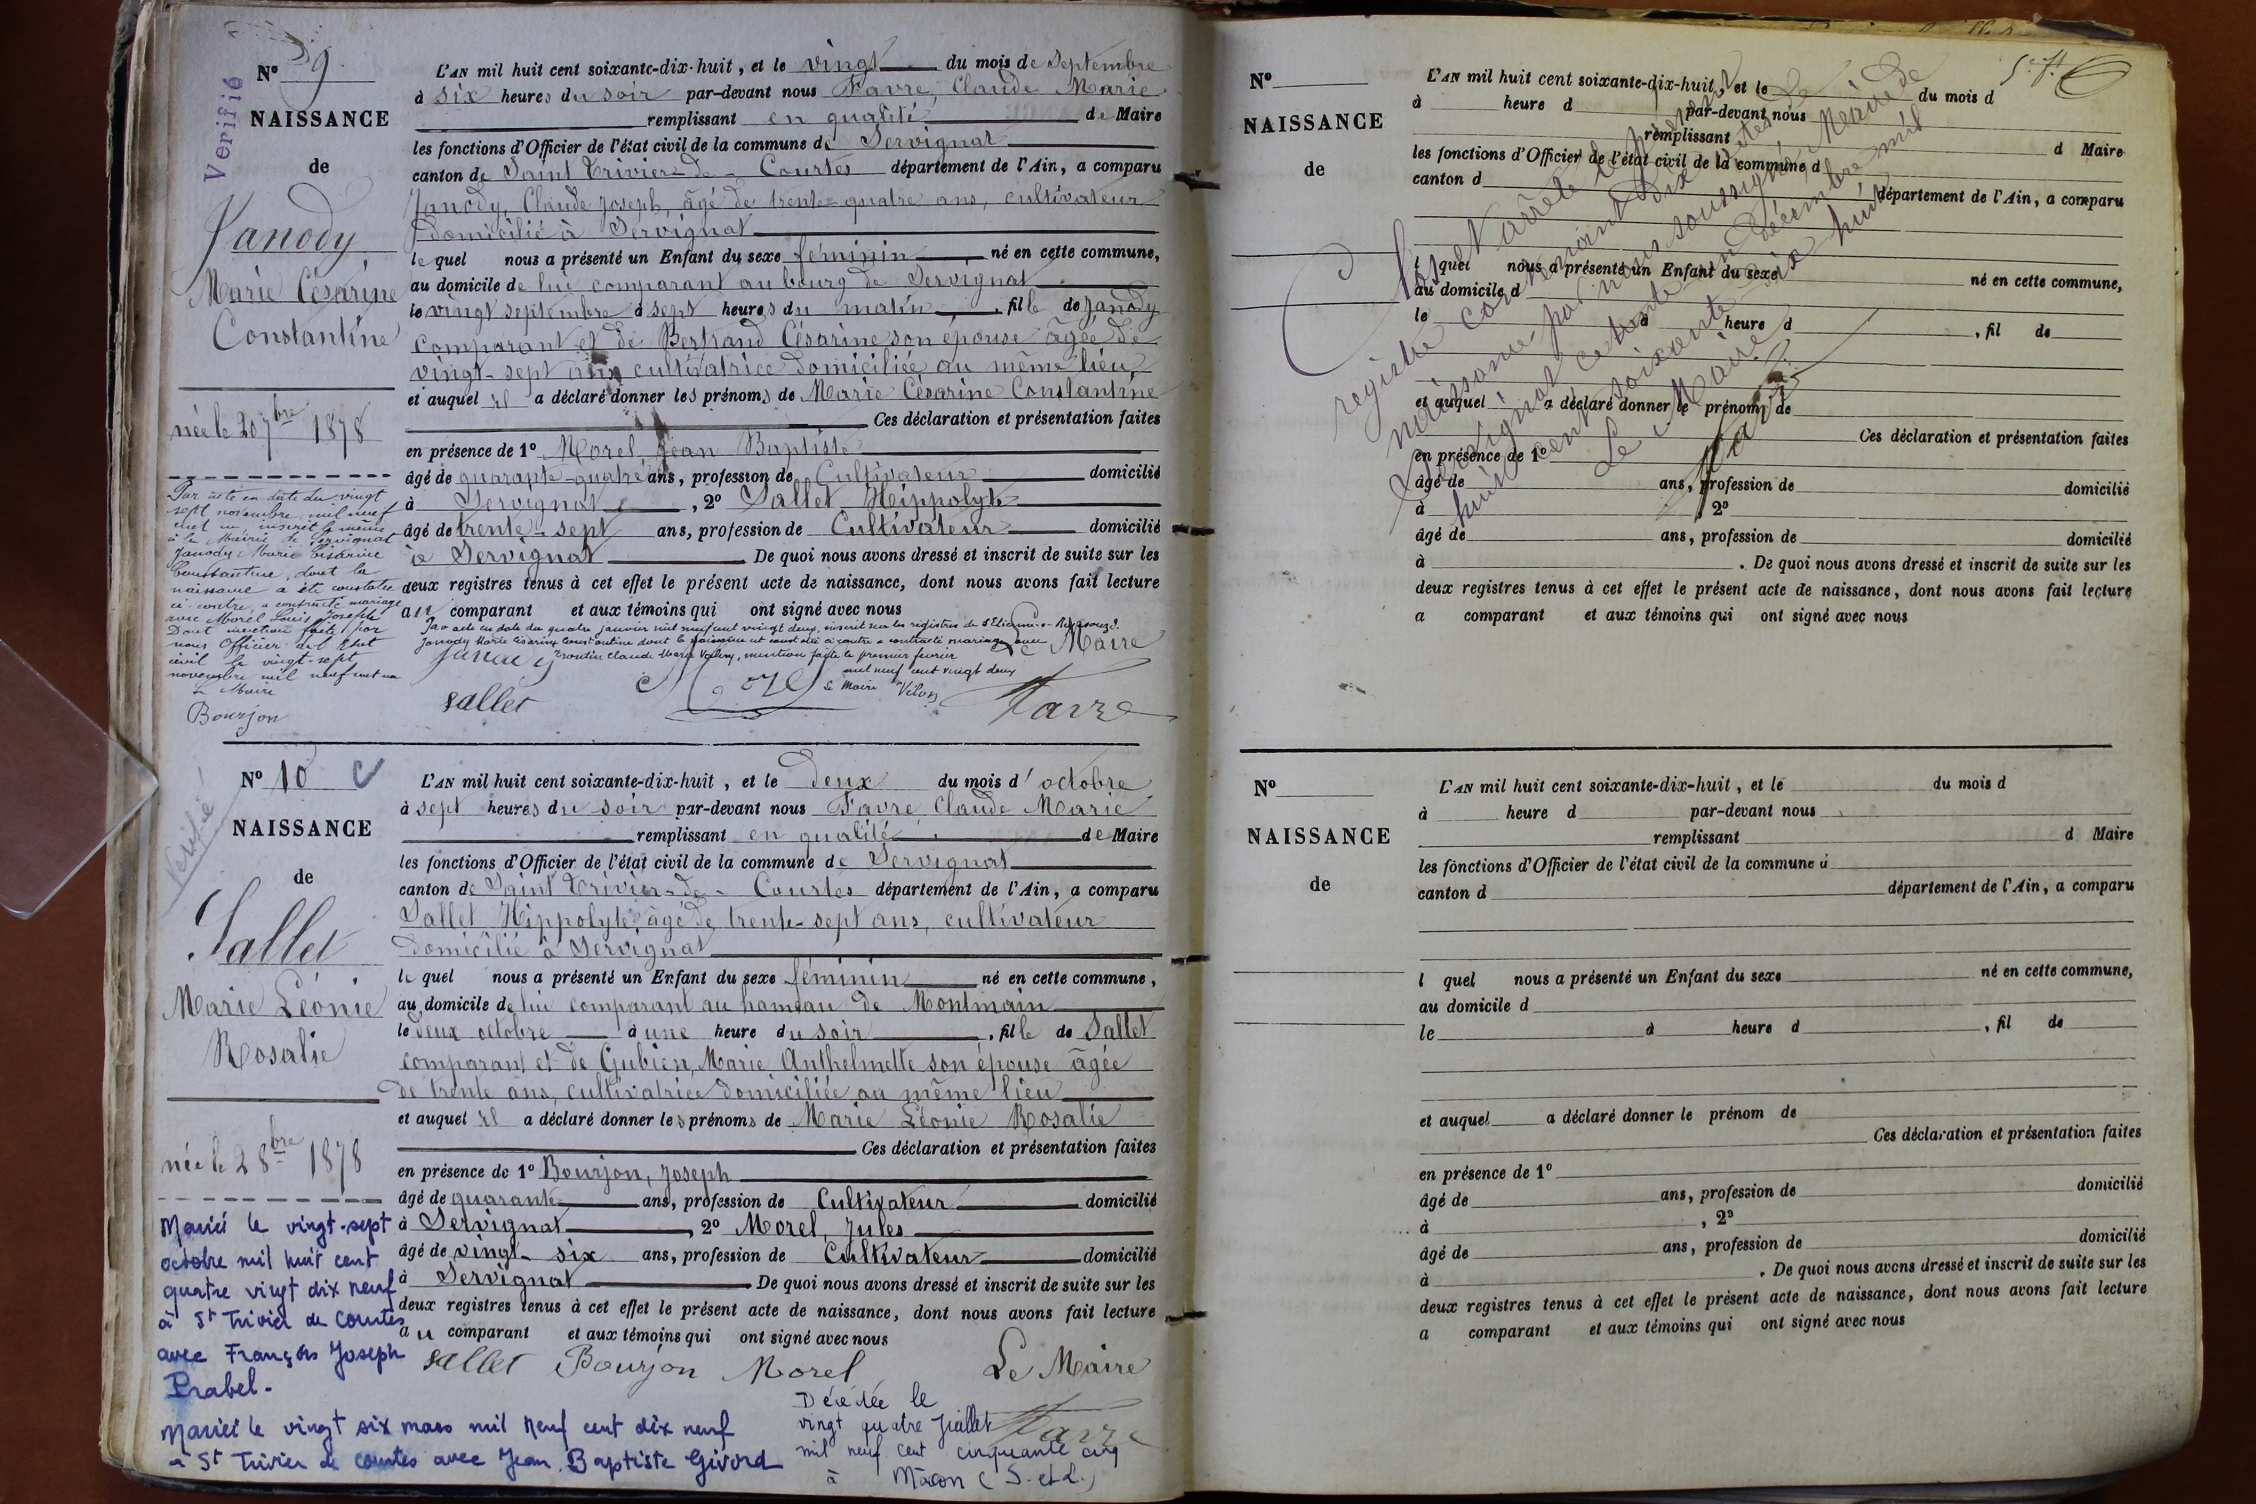 Verifié
N° 9
NAISSANCE
de
Janody
Marie Césarine
Constantine
née le 20 7bre 1878
Par acte en date du vingt
sept novembre mil neuf
cent un, inscrit le même
à la Mairie de Servignat
Janody Marie Césarine
Constantine, dont la
naissance a été constatée
ci-contre, a contracté mariage
avec Morel Louis Joseph
Dont mention faite par
nous Officier de l'Etat
civil le vingt-sept
novembre mil neuf cent un
Le Maire
Bourjon
L'AN mil huit cent soixante-dix-huit, et le vingt du mois de Septembre
à six heures du soir par-devant nous Favre, Claude Marie
remplissant en qualité de Maire
les fonctions d'Officier de l'état civil de la commune de Servignat
canton de Saint Trivier-de-Courtes département de l'Ain, a comparu
Janody, Claude Joseph, âgé de trente-quatre ans, cultivateur
domicilié à Servignat
lequel nous a présenté un Enfant du sexe féminin né en cette commune,
au domicile de lui comparant au bourg de Servignat
le vingt septembre à sept heures du matin, fille de Janody
comparant et de Bertrand Césarine son épouse âgée de
vingt-sept ans cultivatrice domiciliée au même lieu
et auquel il a déclaré donner les prénoms de Marie Césarine Constantine
Ces déclaration et présentation faites
en présence de 1° Morel Jean Baptiste
âgé de quarante-quatre ans, profession de Cultivateur domicilié
à Servignat, 2° Sallet Hippolyte
âgé de trente-sept ans, profession de Cultivateur domicilié
à Servignat De quoi nous avons dressé et inscrit de suite sur les
deux registres tenus à cet effet le présent acte de naissance, dont nous avons fait lecture
au comparant et aux témoins qui ont signé avec nous
Par acte en date du quatre janvier mil neuf cent vingt deux, inscrit sur les registres de St Etienne-s-Reyssouze
Janody Marie Césarine Constantine dont la naissance est constatée ci contre a contracté mariage avec
Claude Marie, mention faite le premier février
mil neuf cent vingt deux
Le Maire
Le Maire
Janody
Morel
Sallet
Favre
N° 10
Vérifié
NAISSANCE
de
Sallet
Marie Léonie
Rosalie
née le 2 8bre 1878
Mariée le vingt-sept
octobre mil huit cent
quatre vingt dix neuf
à St Trivier de Courtes
avec François Joseph
Prabel.
Mariée le vingt six mars mil neuf cent dix neuf
à St Trivier de Courtes avec Jean Baptiste Givord
L'AN mil huit cent soixante-dix-huit, et le deux du mois d'octobre
à sept heures du soir par-devant nous Favre Claude Marie
remplissant en qualité de Maire
les fonctions d'Officier de l'état civil de la commune de Servignat
canton de Saint Trivier-de-Courtes département de l'Ain, a comparu
Sallet Hippolyte âgé de trente-sept ans, cultivateur
domicilié à Servignat
lequel nous a présenté un Enfant du sexe féminin né en cette commune,
au domicile de lui comparant au hameau de Montmain
le deux octobre à une heure du soir, fille de Sallet
comparant et de Gubien, Marie Anthelmette son épouse âgée
de trente ans, cultivatrice domiciliée au même lieu
et auquel il a déclaré donner les prénoms de Marie Léonie Rosalie
Ces déclaration et présentation faites
en présence de 1° Bourjon, Joseph
âgé de quarante ans, profession de Cultivateur domicilié
à Servignat, 2° Morel, Jules
âgé de vingt-six ans, profession de Cultivateur domicilié
à Servignat De quoi nous avons dressé et inscrit de suite sur les
deux registres tenus à cet effet le présent acte de naissance, dont nous avons fait lecture
au comparant et aux témoins qui ont signé avec nous
Sallet Bourjon Morel Le Maire
Favre
Décédée le
vingt quatre Juillet
mil neuf cent cinquante cinq
à Mâcon (S. et L.)
N°
NAISSANCE
de
L'AN mil huit cent soixante-dix-huit, et le du mois d
à heure d par-devant nous
remplissant d Maire
les fonctions d'Officier de l'état civil de la commune d
canton d département de l'Ain, a comparu
l quel nous a présenté un Enfant du sexe né en cette commune,
au domicile d
le à heure d, fil de
et auquel a déclaré donner le prénom de
Ces déclaration et présentation faites
en présence de 1°
âgé de ans, profession de domicilié
à, 2°
âgé de ans, profession de domicilié
à. De quoi nous avons dressé et inscrit de suite sur les
deux registres tenus à cet effet le présent acte de naissance, dont nous avons fait lecture
a comparant et aux témoins qui ont signé avec nous
Clos et arrêté le présent
registre contenant dix actes de
naissance par nous soussigné, Maire de
Servignat ce trente un décembre mil
huit cent soixante dix huit
Le Maire
Favre
N°
NAISSANCE
de
L'AN mil huit cent soixante-dix-huit, et le du mois d
à heure d par-devant nous
remplissant d Maire
les fonctions d'Officier de l'état civil de la commune d
canton d département de l'Ain, a comparu
l quel nous a présenté un Enfant du sexe né en cette commune,
au domicile d
le à heure d, fil de
et auquel a déclaré donner le prénom de
Ces déclaration et présentation faites
en présence de 1°
âgé de ans, profession de domicilié
à, 2°
âgé de ans, profession de domicilié
à. De quoi nous avons dressé et inscrit de suite sur les
deux registres tenus à cet effet le présent acte de naissance, dont nous avons fait lecture
a comparant et aux témoins qui ont signé avec nous